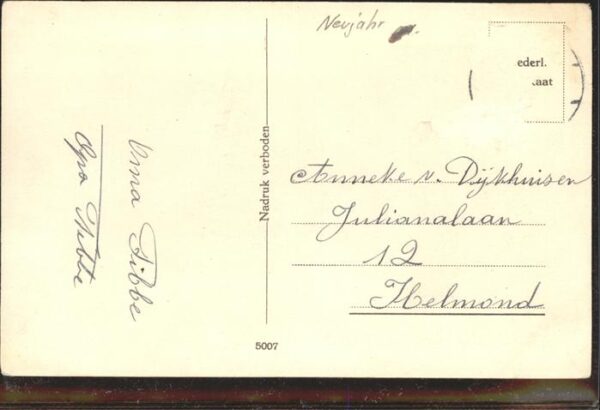 Neujahr
ederl.
aat
Oma Tibbe
Opa Tibbe
Nadruk verboden
Anneke v. Dijkhuizen
Julianalaan
12
Helmond
5007